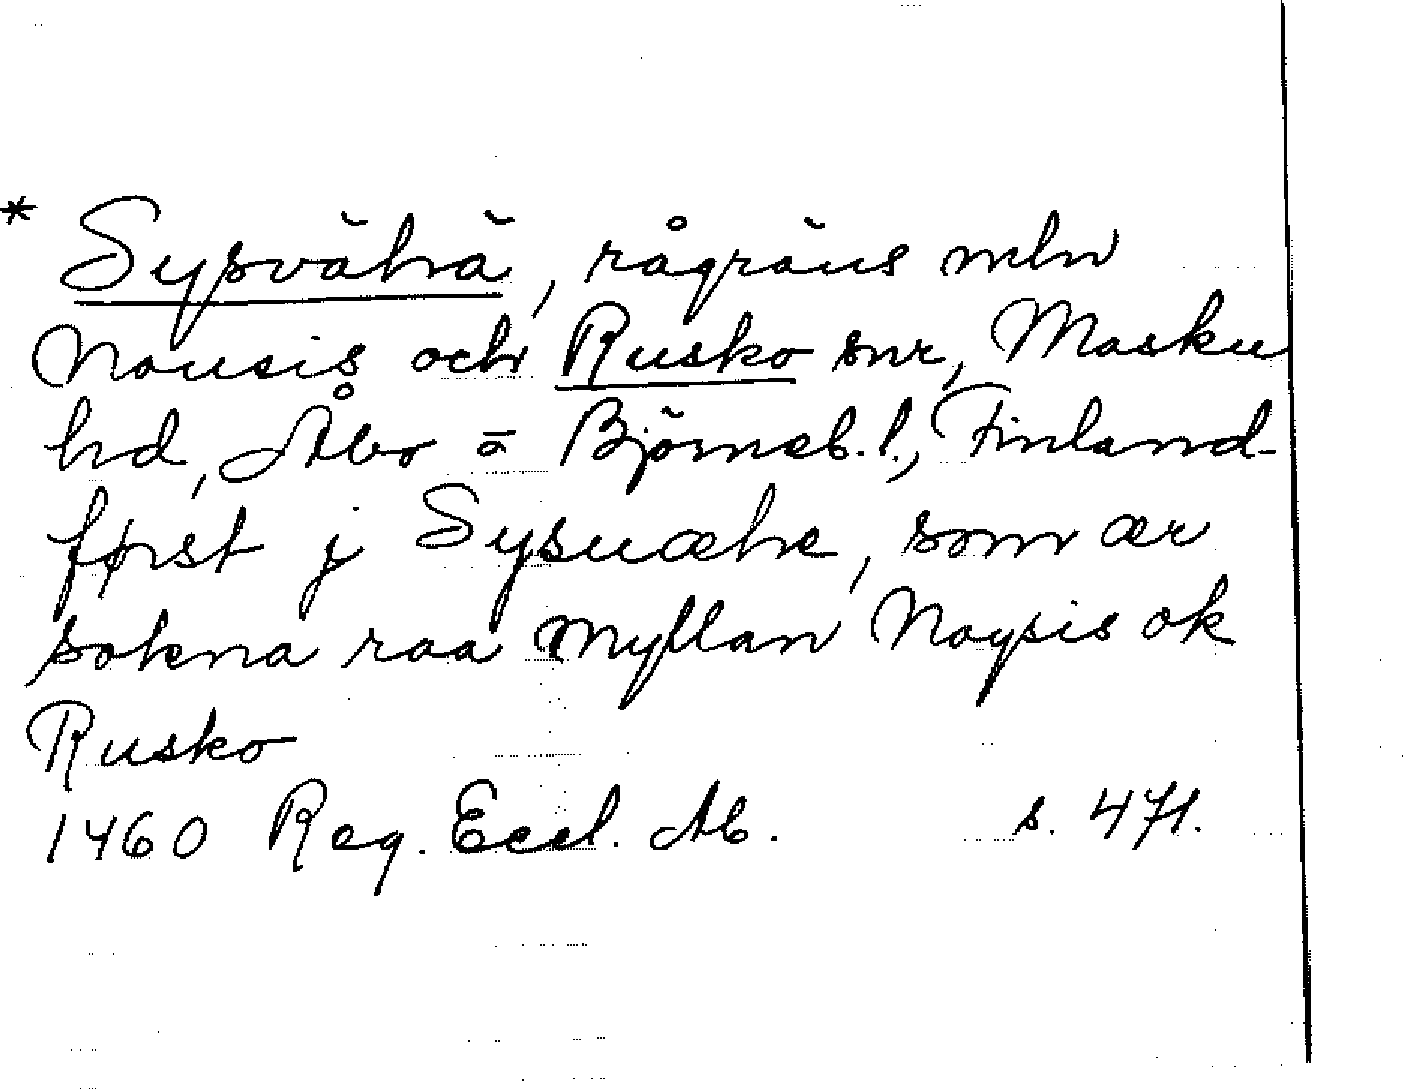 * Sysvähä, rågräns mln
Nousis och Rusko snr, Masku
hd, Åbo o Björneb. l., Finland
først j Sysuæhe, som ær
sokna raa myllan Noysis ok
Rusko
1460 Reg. Eccl. Ab. s. 471.